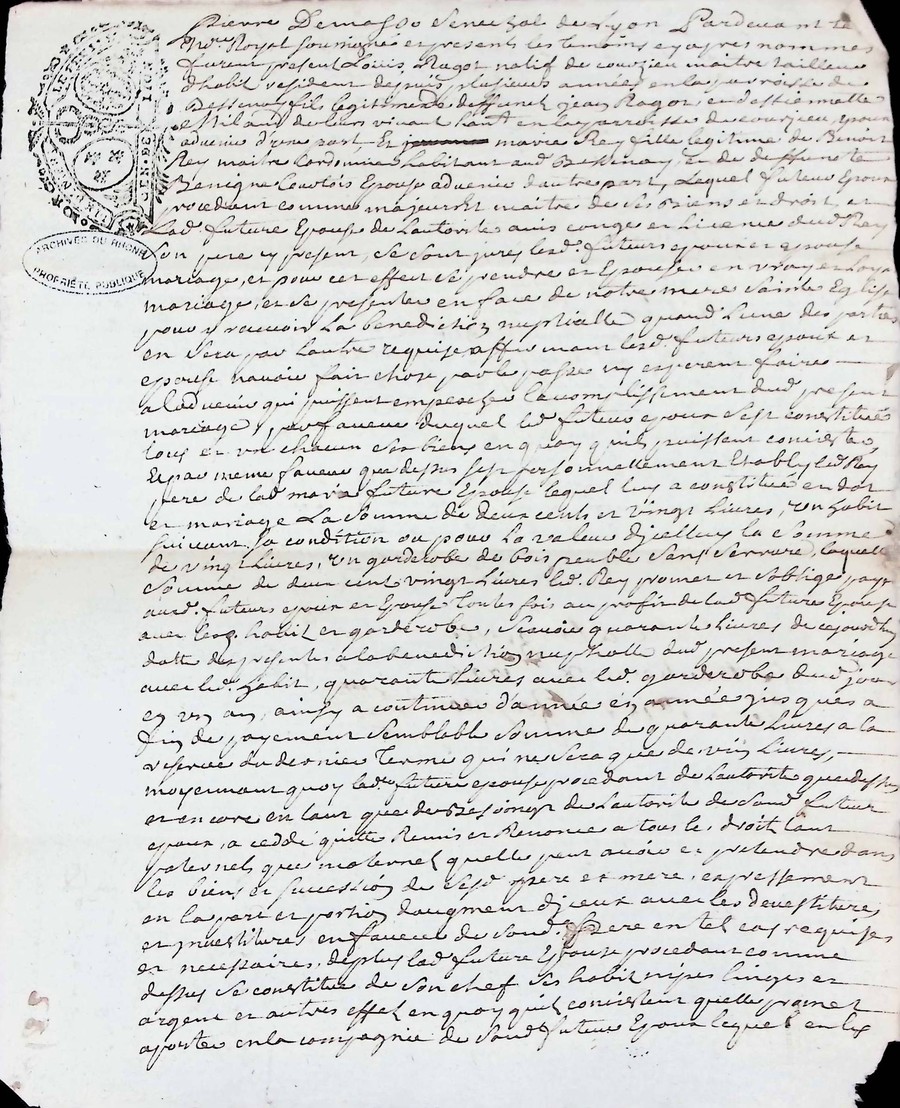 Pierre Demasso Senechal de Lyon Pardevant le
No.re Royal soussigné et presents les temoins cy apres nommes
furent present Louis Ragot natif de courzieu maitre tailleur
d'habit resident depuis plusieurs années en la parroisse de
Bessenay fils legitime de deffunct jean Ragot et d'estiennette
Milaud de leurs vivant hant en la parroisse de courzieu, epoux
advenir d'une part, Et marie Rey fille legitime de Benoit
Rey maitre Cordonnier habitant aud Bessenay, et de deffuncte
Benigne Courtois Epouse advenir dautre part, Lequel futeur Epoux
procedant comme majeur et maitre de ses Biens et droit, et
Lad.e future Epouse de Lautorité avis congé et Licence dud Rey
son pere cy present, se sont jures lesd. futeurs epoux et epouse
mariage, et pour cet effect se prendre et Epouser en vray et Loyal
mariage, et se presenter en face de notre mere Sainte Eglise
pour y recevoir La benediction nuptialle quand Lune des parties
en sera par Lautre requise affirmant lesd. futeurs epoux et
epouse n'avoir fait chose par le passé ny esperent faire
a ladvenir qui puissent empecher laccomplissement dud present
mariage, par faveur duquel led. futeur epoux sest constitué
tous et un chacun ses biens en quoy quils puissent concister,
Et par meme faveur que dessus sest personnellement Etably led Rey
pere de lad. marie future Epouse lequel luy a constitué en dot
et mariage La somme de deux cents et vingt Livres, un habit
suivant sa condition ou pour La valeur d'jcelluy la somme
de vingt Livres, un garderobe de bois peuble sens serrure, laquelle
somme de deux cent vingt Livres led. Rey promet et soblige payer
auxd. futeurs epoux et Epouse toutes fois au profit de lad. future Epouse
avec lesd. habit et garderobe, scavoir quarante Livres de cejourdhuy
datte des presentes a la benediction nuptialle dud present mariage
avec led. habit, quarante Livres avec led. garderobe dud jour
en un an, ainsy a continuer d'année en année jusques a
fin de payement semblable somme de quarante Livres a la
reserve du dernier Terme qui ne sera que de vin Livres,
moyennant quoy lad. future epouse procedant de Lautorité que dessus
et encore en tant que de Besoing de Lautorité de sond. futeur
epoux, a ceddé quitté Remis et Renoncé a tous les droit tant
paternels que maternel quelle peut avoir et pretendre dans
les biens et sucession de sesd. pere et mere, expressement
en la part et portion daugment d'jceux avec les devestitures
et jnvestitures en faveur de sond. Pere en tel cas requises
et necessaires, de plus lad. future Epouse procedant comme
dessus se constitue de son chef ses habit nipes linges et
argent et autres effet en quoy quil concistent quelle promet
aporter en la compagnie de sond. futeur Epoux lequel en les
ARCHIVES DU RHÔNE
PROPRIÉTÉ PUBLIQUE